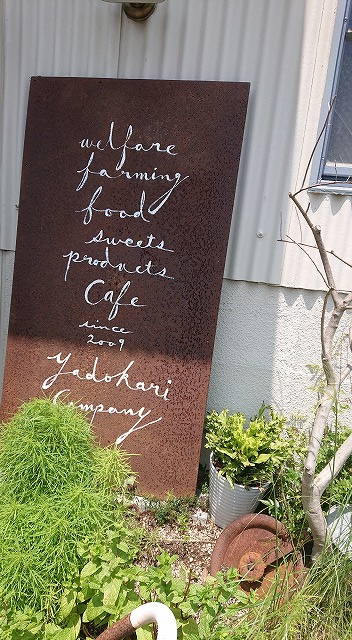 welfare
farming
food
sweets
products
Cafe
since
2009
Yadokari
Company